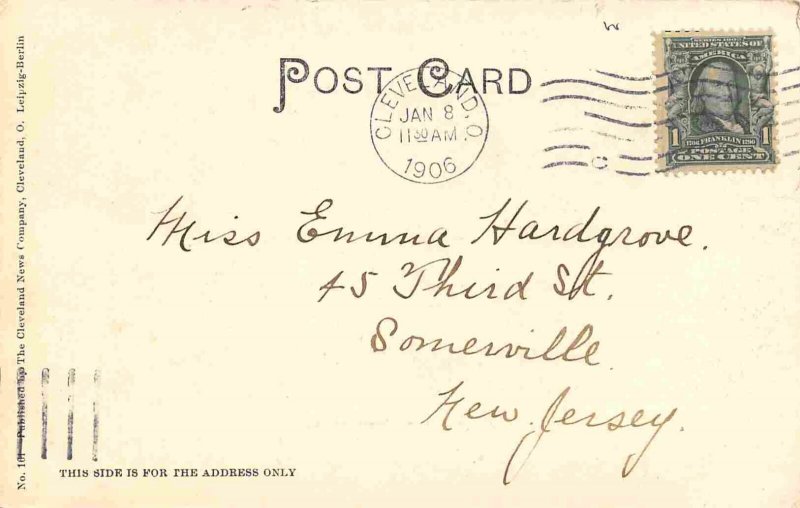 POST CARD
CLEVELAND, O.
JAN 8
11 30 AM
1906
SERIES 1902
UNITED STATES OF
AMERICA
1 1
FRANKLIN
POSTAGE
ONE CENT
Miss Emma Hardgrove.
45 Third St.
Somerville
New Jersey.
THIS SIDE IS FOR THE ADDRESS ONLY
No. 101 Published by The Cleveland News Company, Cleveland, O. Leipzig-Berlin